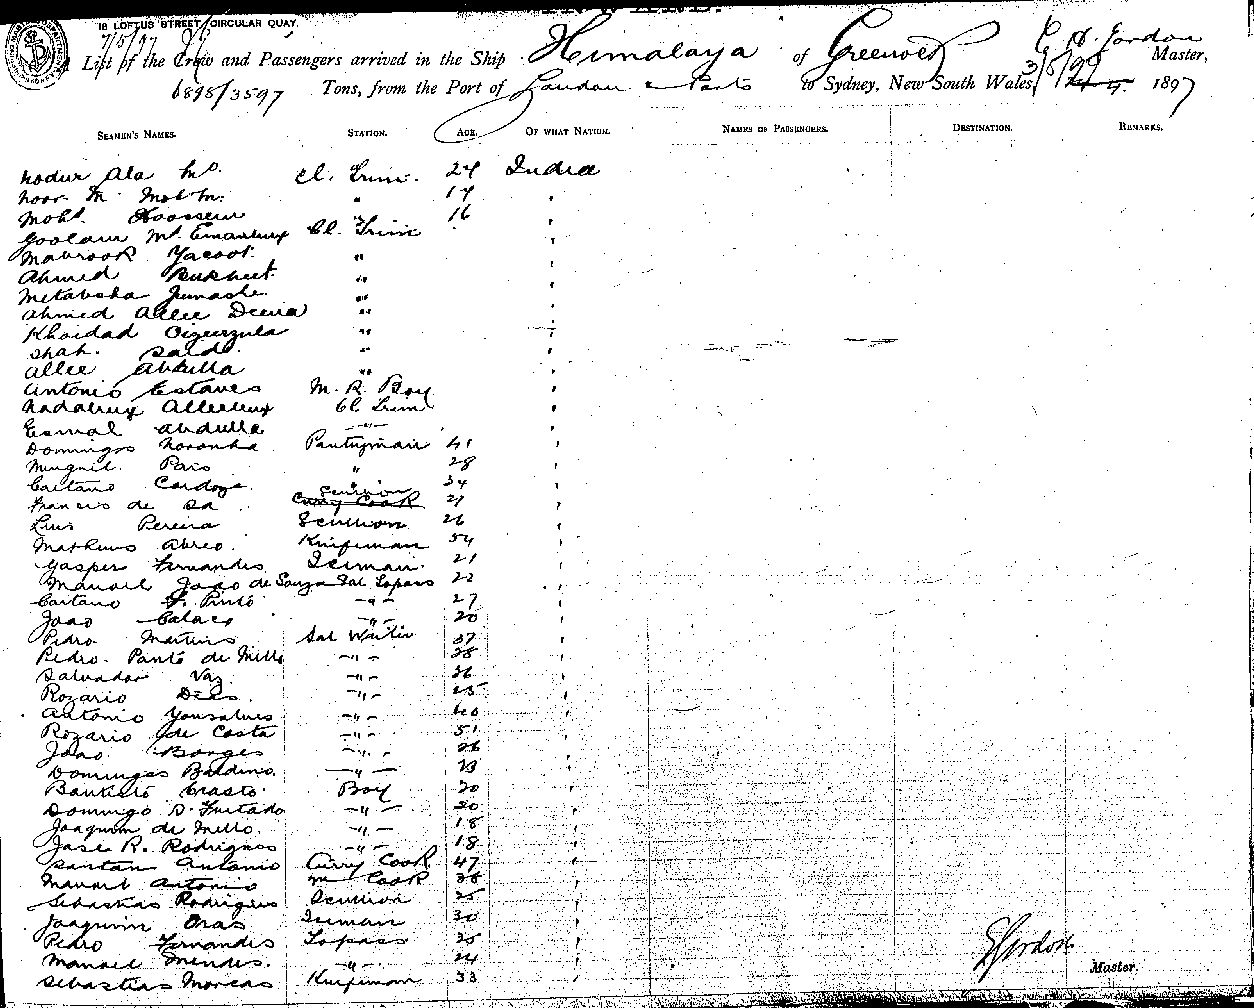 18 LOFTUS STREET, CIRCULAR QUAY.
7/5/97
List of the Crew and Passengers arrived in the Ship Himalaya of Greenock Master,
6898/3597 Tons, from the Port of London & Ports to Sydney, New South Wales, 1897
SEAMEN'S NAMES. STATION. AGE. OF WHAT NATION. NAMES OF PASSENGERS. DESTINATION. REMARKS.
Ala Cl. Trim. 24 India
Noor M. " 17 "
Moht. Hoossein " 16 "
Goolam Mt. Cl. Trim "
Mabrook Yacoot "
Ahmed "
"
Ahmed Allee "
Khoidad "
Shah. Said. "
Allee Abdulla "
Antonio Estaves M. R. Boy "
Cl. Trim "
Esmal Abdulla -"- "
Domingos Noronha Pantryman 41 "
Pais " 28 "
Caetano Cardoza " 34 "
Francis de Sa Scullion Curry Cook 21 "
Luis Pereira Scullion 26 "
Matheus Abreo Knifeman 54 "
Gasper Fernandes Iceman 21 "
Manoel Joao de Souza Sal Topass 22 "
Caetano F. Pinto -"- 27 "
Joao Colaco -"- 20 "
Pedro Martins Sal Waiter 37 "
Pedro Panto de Mello -"- 38 "
Salvador Vaz -"- 36 "
Rozario Dias -"- 25 "
Antonio Gonsalves -"- 40 "
Rozario de Costa -"- 51 "
Joao Borges -"- 26 "
Domingos -"- 23 "
Bautisto Crasto Boy 20 "
Domingo D. Furtado -"- 20 "
Joaquim de Mello -"- 18 "
Jose R. Rodrigues -"- 18 "
Santan Antonio Curry Cook 47 "
Manoel Antonio Cook 38 "
Sebastias Rodrigues Scullion 25 "
Joaquim Iceman 30 "
Pedro Fernandes Topass 25 "
Manoel Mendes " 24 "
Sebastias Knifeman 33 "
Master.